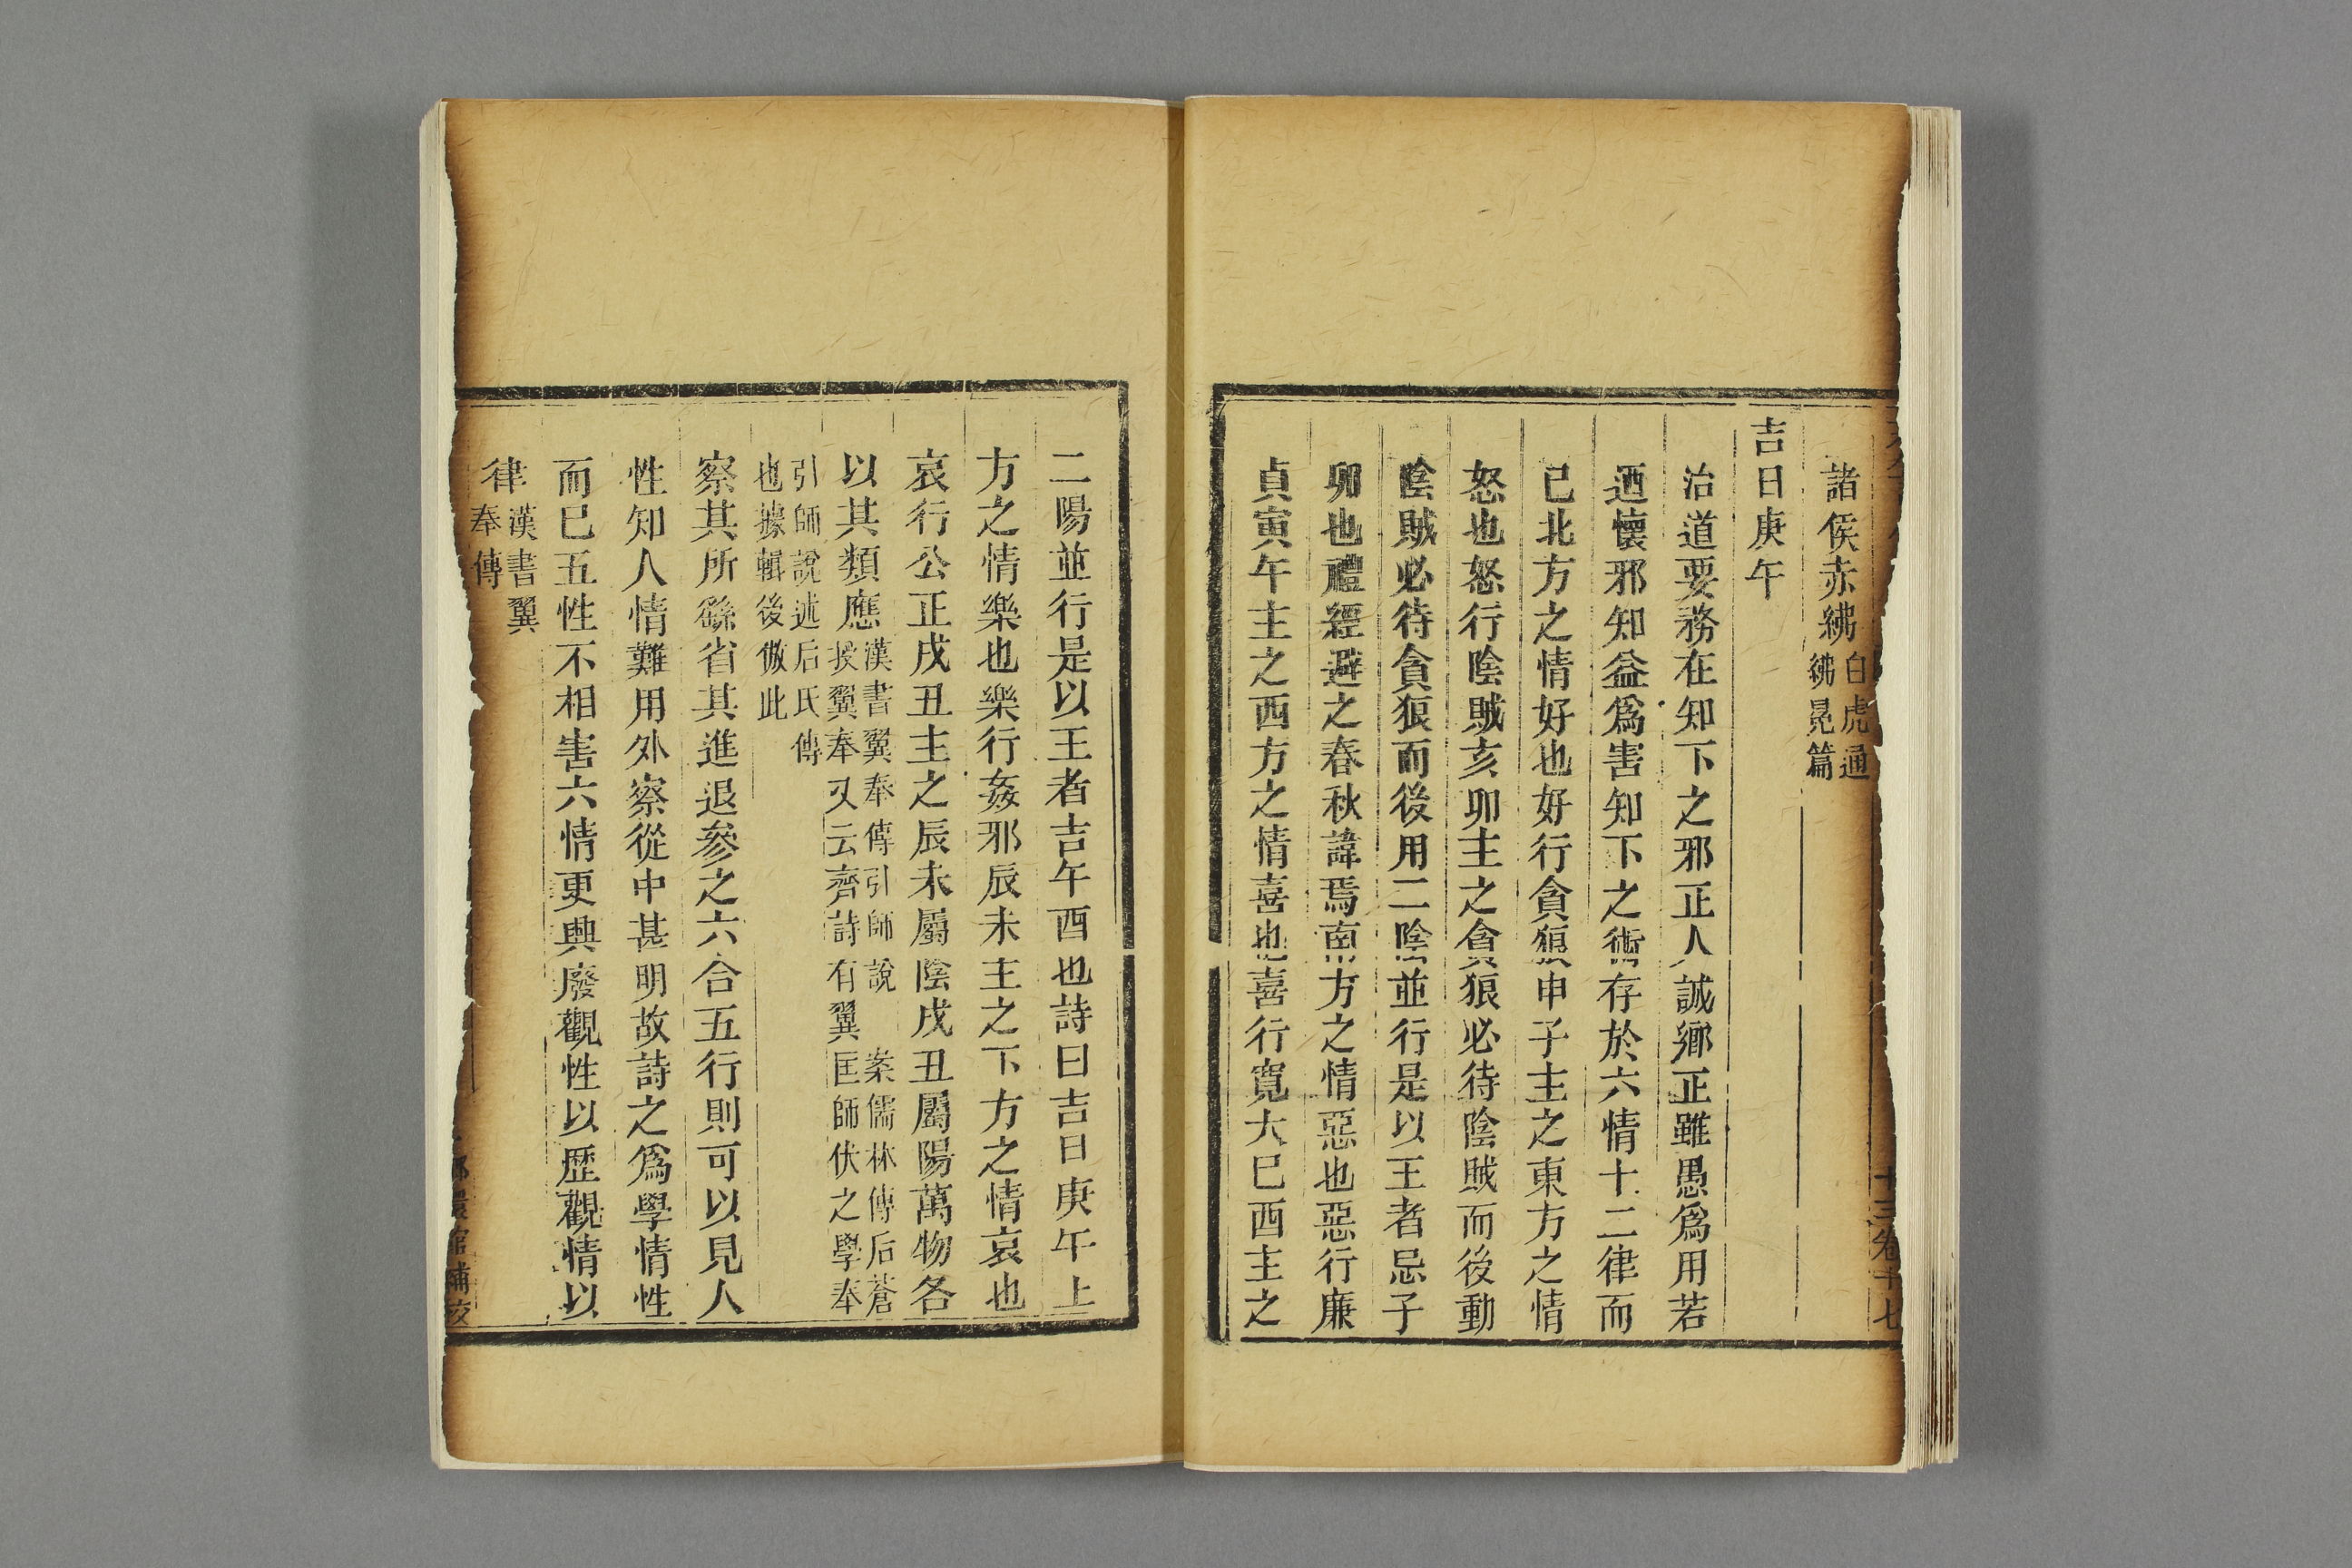 諸侯赤紼白虎通
紼冕篇
吉日庚午
治道要務在知下之邪正人誠鄉正雖愚爲用若
迺懷邪知益爲害知下之術存於六情十二律而
已北方之情好也好行貪狼申子主之東方之情
怒也怒行陰賊亥卯主之貪狼必待陰賊而後動
陰賊必待貪狼而後用二陰並行是以王者忌子
卯也禮經避之春秋諱焉南方之情惡也惡行廉
貞寅午主之西方之情喜也喜行寬大巳酉主之
十三卷十七
二陽並行是以王者吉午酉也詩曰吉日庚午上
方之情樂也樂行姦邪辰未主之下方之情哀也
哀行公正戌丑主之辰未屬陰戌丑屬陽萬物各
以其類應漢書翼奉傳引師說 案儒林傳后蒼
授翼奉又云齊詩有翼匡師伏之學奉
引師說述后氏傳
也據輯後倣此
察其所繇省其進退參之六合五行則可以見人
性知人情難用外察從中甚明故詩之爲學情性
而已五性不相害六情更興廢觀性以歷觀情以
律漢書翼
奉傳
館補校